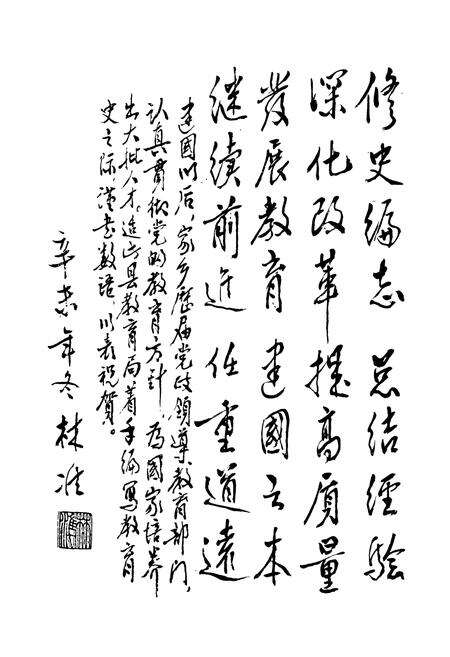 修史编志 总结經验
深化改革 提高质量
發展教育 建國之本
继續前進 任重道遠
建國以后,家乡歷届党政領導、教育部门,
认真贯彻党的教育方针,为國家培养
出大批人才。此县教育局着手编写教育
史之际,谨書数语,以表祝贺。
辛未年冬 林准